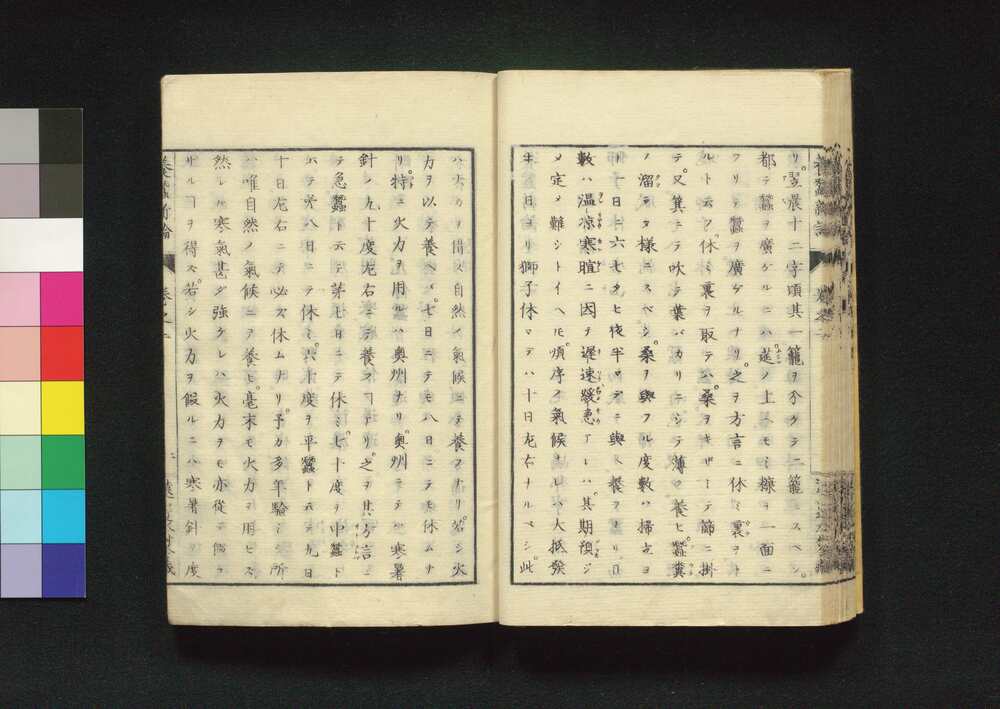 リ翌晨十二字頃其一籠ヲ分クテ二籠トスベシ
都テ蠶ヲ廣ゲルニハ莚ノ上ヘモミ糠ヲ一面ニ
フリテ蠶ヲ廣ゲルナリ之ヲ方言ニ休ミ裏ヲト
ルト云フ休ミ裏ヲ取テハ桑ヲキザミテ篩ニ掛
テ又箕ニテ吹テ葉バカリニシテ薄ク養ヒ蠶糞
ノ溜ラヌ樣ニスベシ桑ヲ與フル度數ハ掃立ヨ
リ一日ニ六七タヒ夜半マデニ與ヘ養フナリ
數ハ温凉寒暄ニ因テ遲速緩急アレハ其期預ジ
メ定メ難シトイヘ𪜈順序ノ氣候ナレバ大抵發
生日ヨリ獅子休マテハ十日左右ナルベシ此
ハ火力ヲ借ズ自然ノ氣候ニテ養フナリ若シ火
力ヲ以テ養ヘバ七日ニテモ八日ニテモ休ムナ
リ特ニ火力ヲ用ルハ奧州ナリ奧州ニテハ寒暑
針ノ九十度左右ニテ養フヿアリ之ヲ其方言ニ
テ急蠶ト云テ第七日ニテ休ミ七十度ヲ中蠶ト
云テ第八日ニテ休ミ六十度ヲ平蠶ト云テ九日
十日左右ニテ必ズ休ムナリ予カ多年驗ミシ所
ハ唯自然ノ氣候ニヲ養ヒ毫末モ火力ヲ用ヒズ
然レ𪜈寒氣甚ダ強ケレハ火力ヲモ亦從テ假ラ
サルヿヲ得ズ若シ火力ヲ假ルニハ寒暑針ノ度